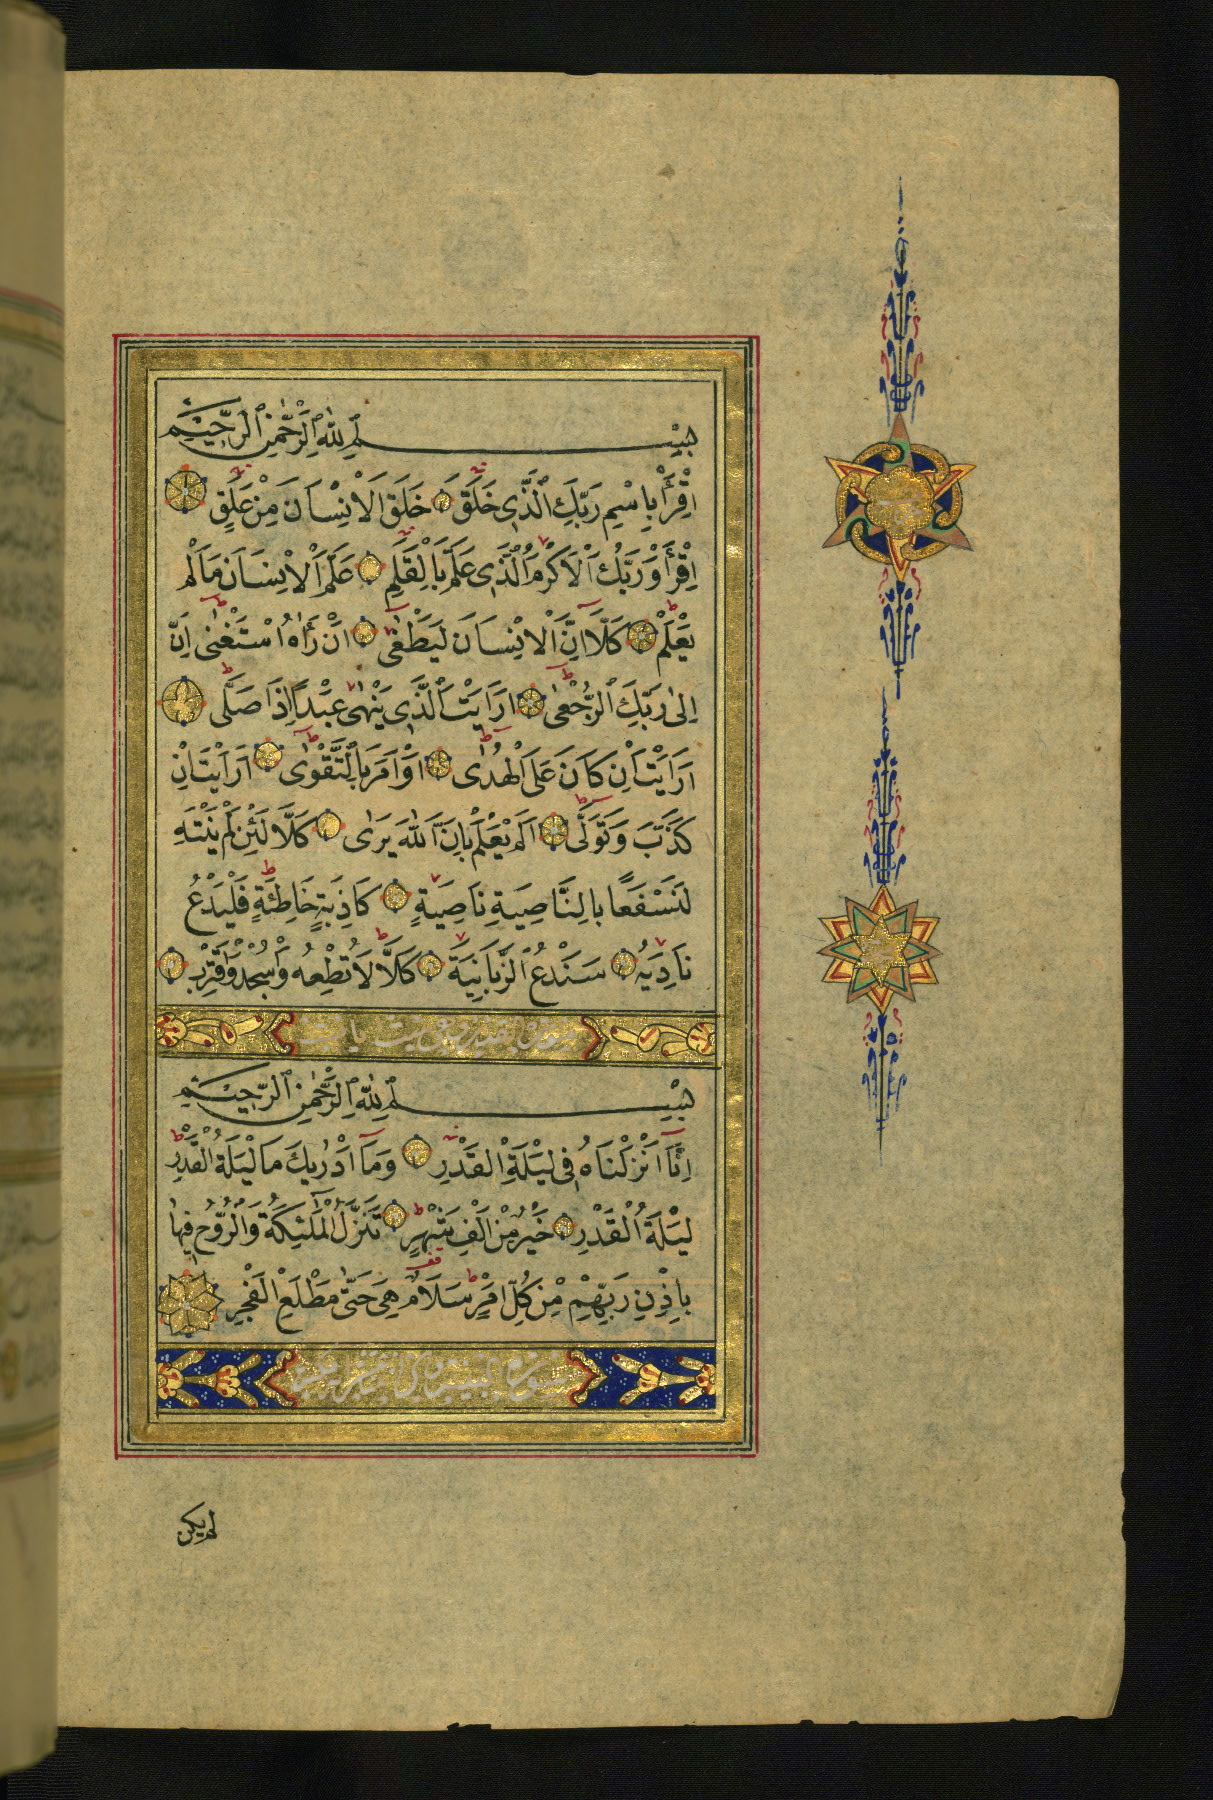 بِسْمِ اللّٰهِ الرَّحْمٰنِ الرَّحِيْمِ
اِقْرَأْ بِاسْمِ رَبِّكَ الَّذِى خَلَقَ خَلَقَ الْاِنْسَانَ مِنْ عَلَقٍ
اِقْرَأْ وَرَبُّكَ الْاَكْرَمُ الَّذِى عَلَّمَ بِالْقَلَمِ عَلَّمَ الْاِنْسَانَ مَا لَمْ
يَعْلَمْ كَلَّا اِنَّ الْاِنْسَانَ لَيَطْغٰى اَنْ رَاٰهُ اسْتَغْنٰى اِنَّ
اِلٰى رَبِّكَ الرُّجْعٰى اَرَاَيْتَ الَّذِى يَنْهٰى عَبْدًا اِذَا صَلّٰى
اَرَاَيْتَ اِنْ كَانَ عَلَى الْهُدٰى اَوْ اَمَرَ بِالتَّقْوٰى اَرَاَيْتَ اِنْ
كَذَّبَ وَتَوَلّٰى اَلَمْ يَعْلَمْ بِاَنَّ اللّٰهَ يَرٰى كَلَّا لَئِنْ لَمْ يَنْتَهِ
لَنَسْفَعًا بِالنَّاصِيَةِ نَاصِيَةٍ كَاذِبَةٍ خَاطِئَةٍ فَلْيَدْعُ
نَادِيَهُ سَنَدْعُ الزَّبَانِيَةَ كَلَّا لَا تُطِعْهُ وَاسْجُدْ وَاقْتَرِبْ
بِسْمِ اللّٰهِ الرَّحْمٰنِ الرَّحِيْمِ
اِنَّا اَنْزَلْنَاهُ فِى لَيْلَةِ الْقَدْرِ وَمَا اَدْرٰيكَ مَا لَيْلَةُ الْقَدْرِ
لَيْلَةُ الْقَدْرِ خَيْرٌ مِنْ اَلْفِ شَهْرٍ تَنَزَّلُ الْمَلٰئِكَةُ وَالرُّوْحُ فِيْهَا
بِاِذْنِ رَبِّهِمْ مِنْ كُلِّ اَمْرٍ سَلَامٌ هِىَ حَتّٰى مَطْلَعِ الْفَجْرِ
لم يكن